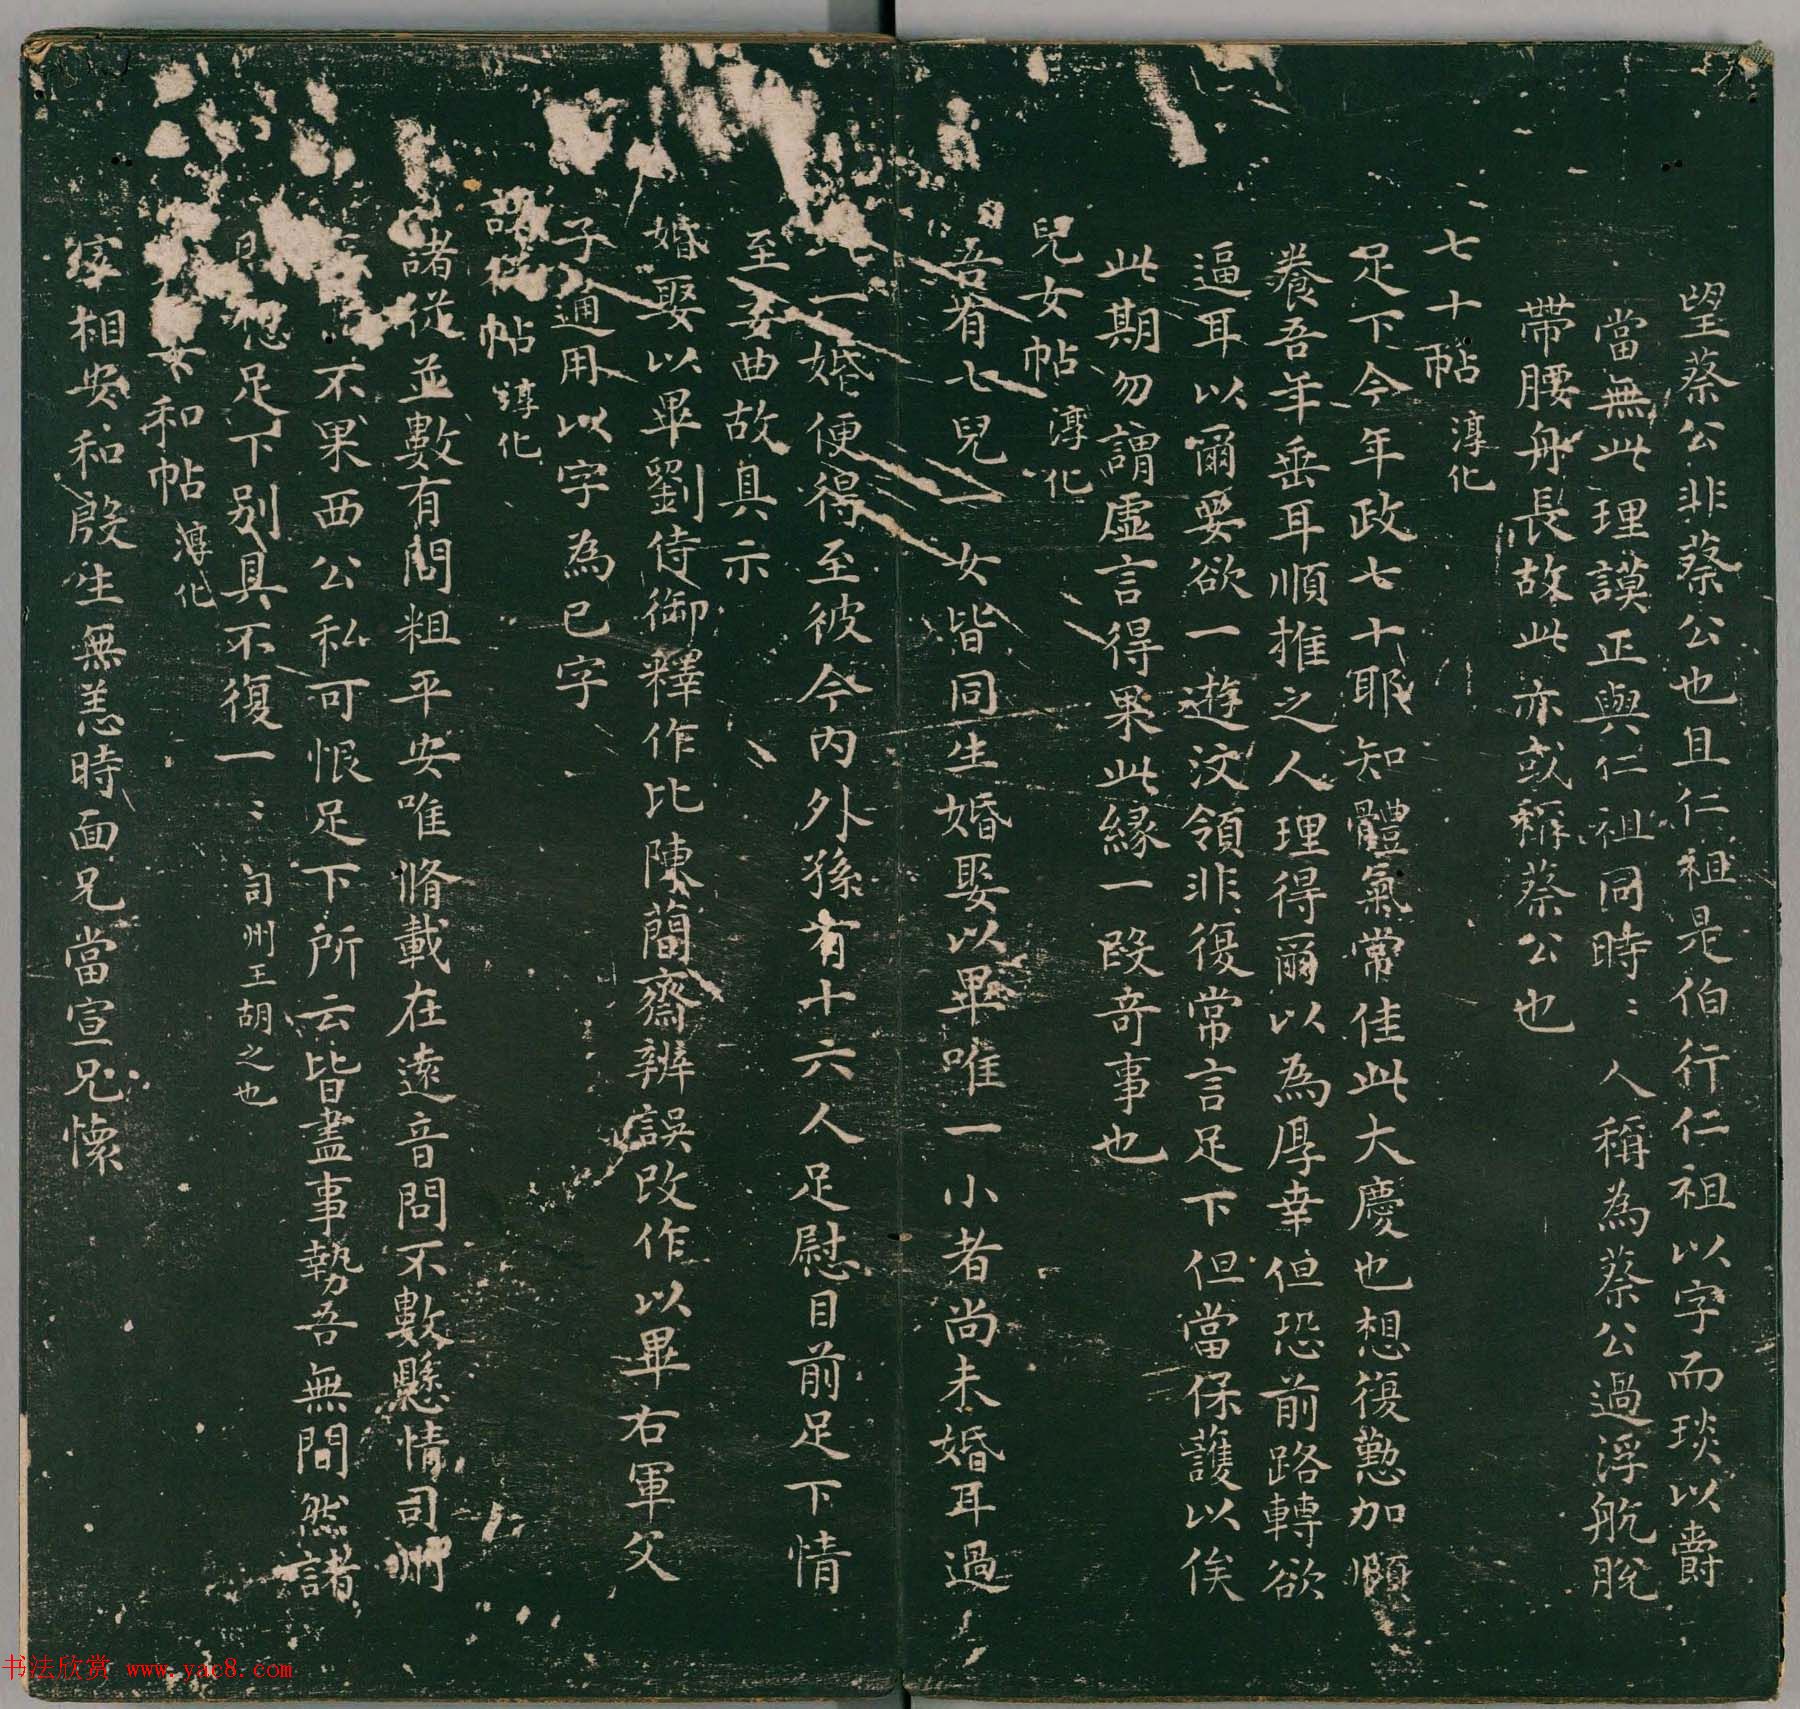 望蔡公非蔡公也且仁祖是伯行仁祖以字而琰以爵
當無此理謨正與仁祖同時〻人稱為蔡公過浮航脫
帶腰舟長故此亦或稱蔡公也
七十帖 淳化
足下今年政七十耶知體氣常佳此大慶也想復懃加頤
養吾年垂耳順推之人理得爾以為厚幸但恐前路轉欲
逼耳以爾要欲一遊汶領非復常言足下但當保護以俟
此期勿謂虛言得果此緣一段奇事也
兒女帖 淳化
吾有七兒一女皆同生婚娶以畢唯一小者尚未婚耳過
此一婚便得至彼今內外孫有十六人足慰目前足下情
至委曲故具示
婚娶以畢劉侍御釋作比陳蕳齋辨誤改作以畢右軍父
子通用以字為已字
諸從帖 淳化
諸從並數有問粗平安唯脩載在遠音問不數懸情司州
不果西公私可恨足下所云皆盡事勢吾無間然諸
想足下別具不復一〻 司州王胡之也
女和帖 淳化
家相安和殷生無恙時面兄當宣兄懷
书法欣赏 www.yac8.com